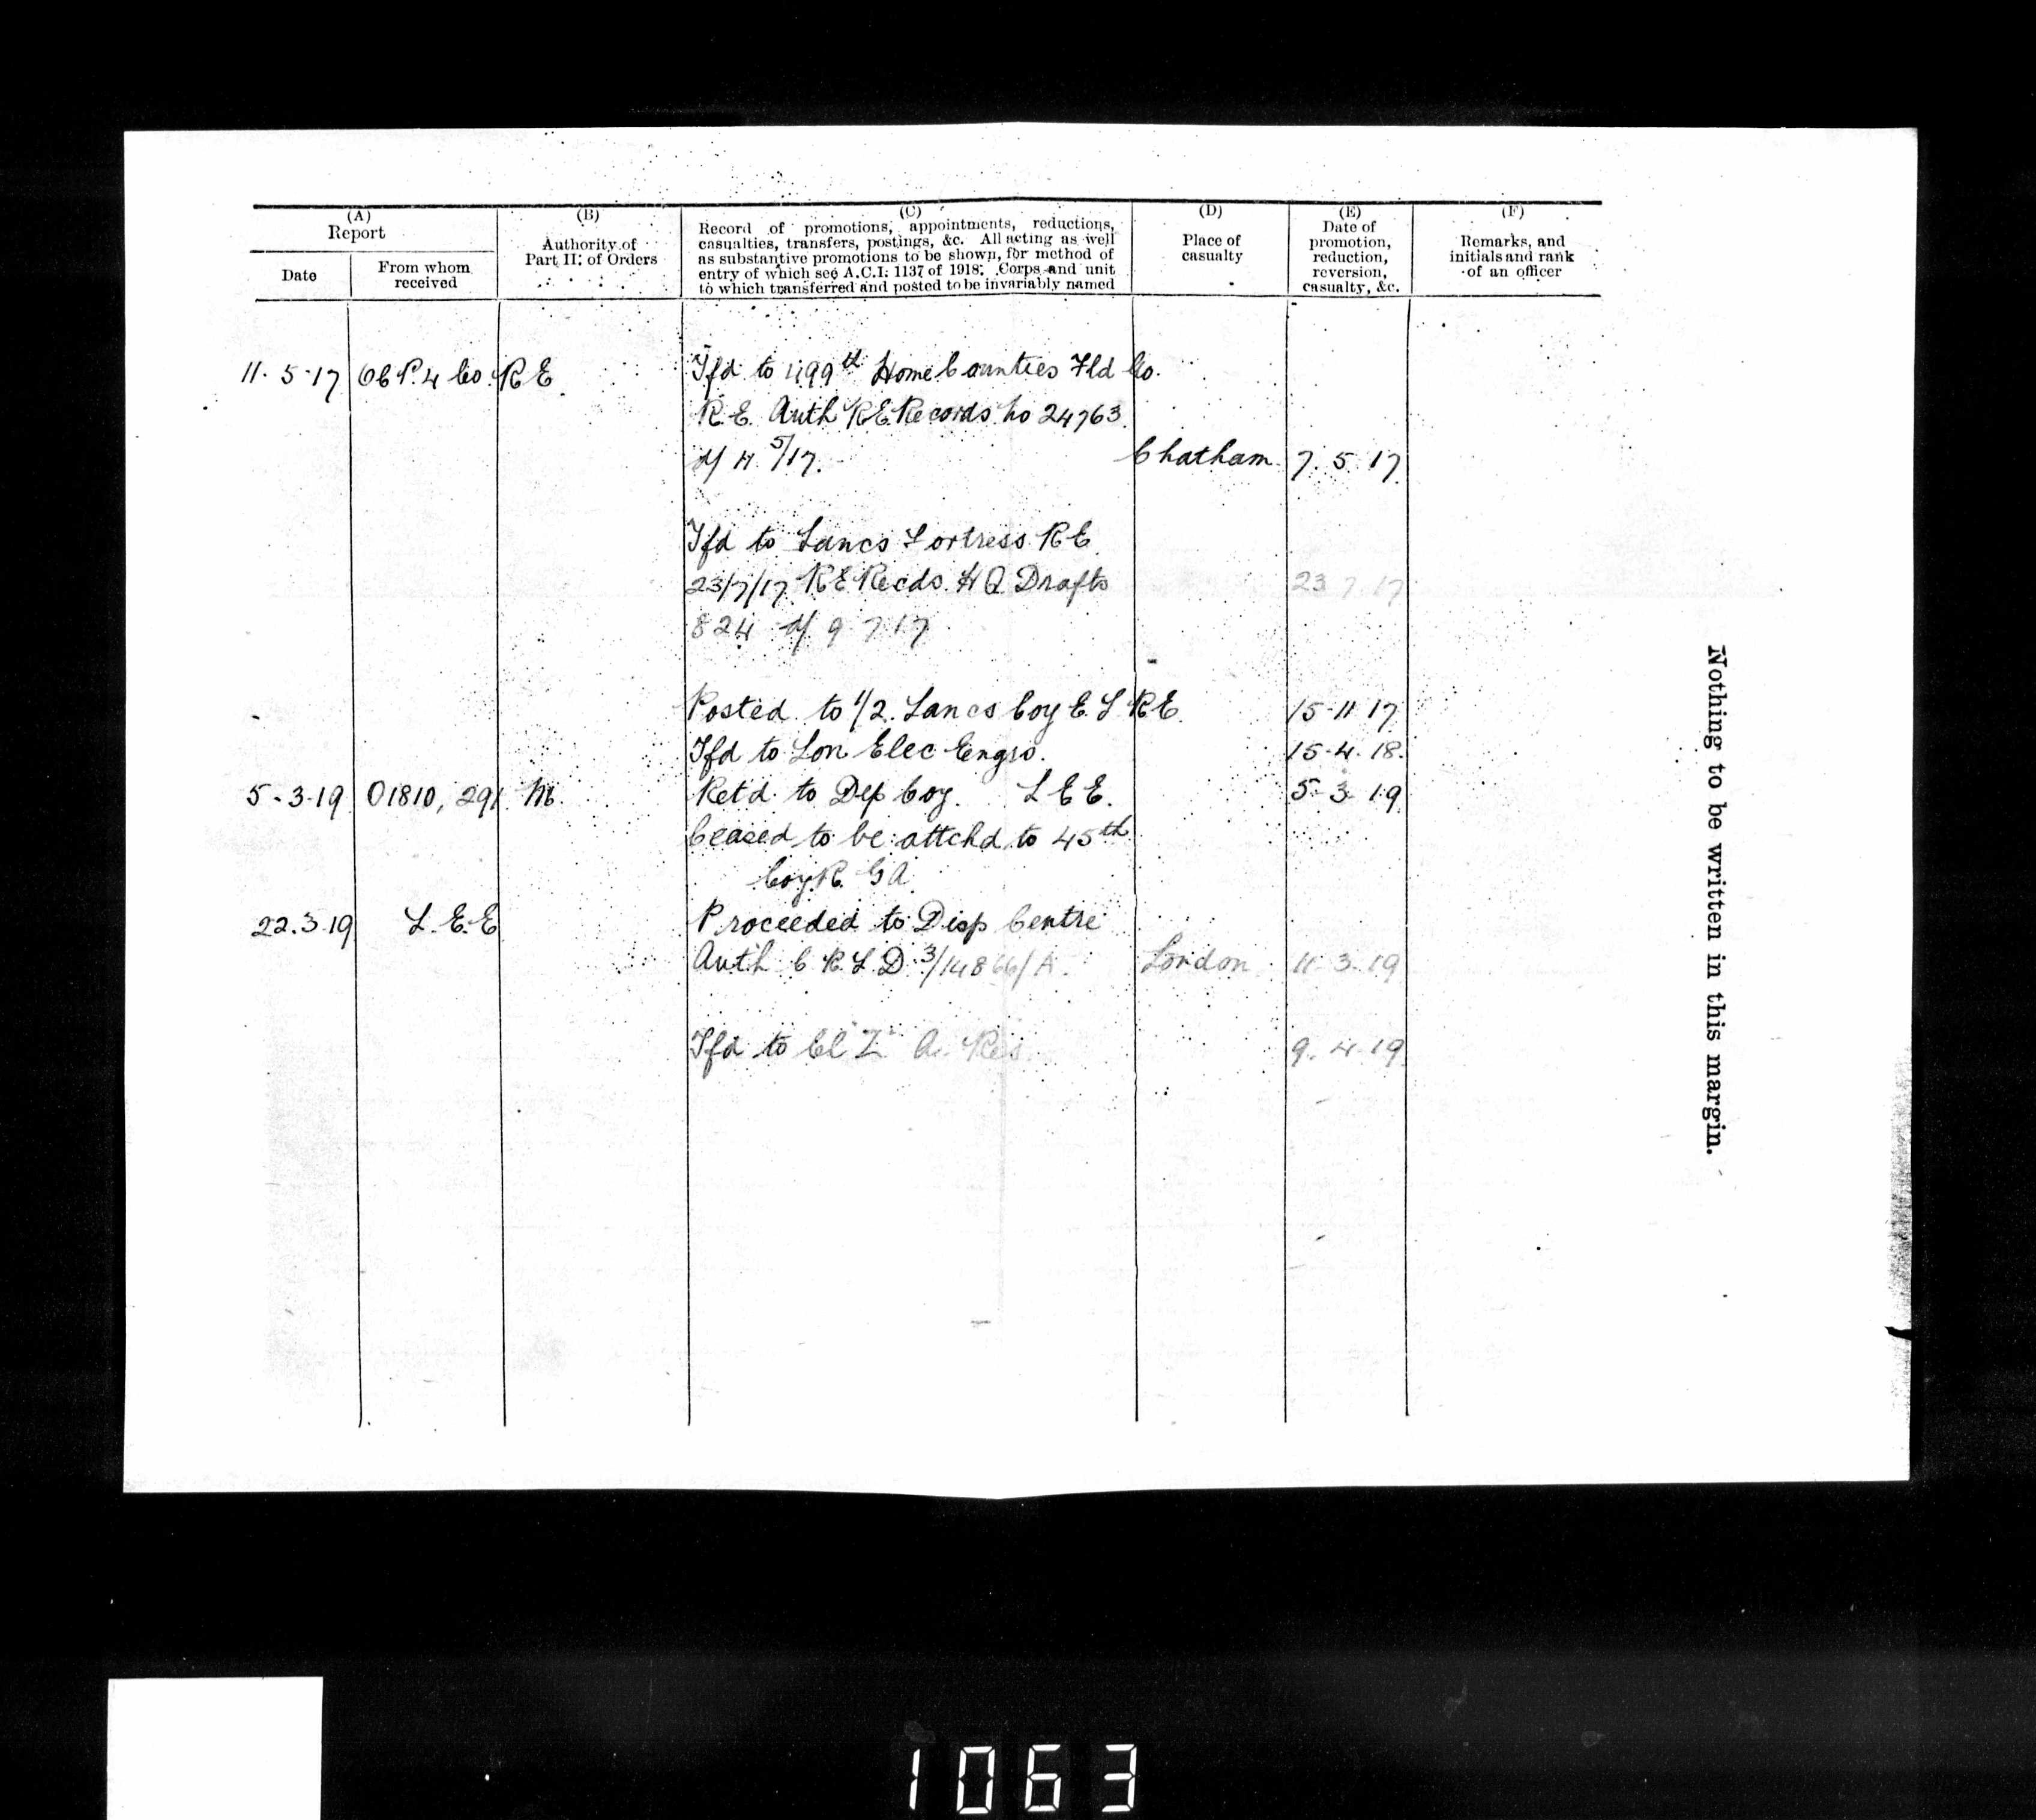 (A)
Report
Date
From whom
received
(B)
Authority of
Part II. of Orders
(C)
Record of promotions, appointments, reductions,
casualties, transfers, postings, &c. All acting as well
as substantive promotions to be shown, for method of
entry of which see A.C.I. 1137 of 1918. Corps and unit
to which transferred and posted to be invariably named
(D)
Place of
casualty
(E)
Date of
promotion,
reduction,
reversion,
casualty, &c.
(F)
Remarks, and
initials and rank
of an officer
11.5.17 Co. RE Tfd to 499th Home Counties Fld Co.
R.E. Auth R.E. Records no 24763
5/17. Chatham 7.5.17
Tfd to Lancs Fortress RE
23/7/17 RE Recds. HQ Drafts 23 7 17
824 d/ 9 7 17
Posted to 1/2. Lancs Coy E. L RE. 15-11-17
Tfd to Lon Elec Engrs. 15.4.18.
5-3-19 01810, 291 Ret'd to Dep Coy. L E E. 5-3-19
Ceased to be attchd to 45th
Coy R. G A
22.3.19 L.E.E Proceeded to Disp Centre
Auth C.R.L.D. 3/14866/A. London 11-3-19
Tfd to Cl "Z" A. Res. 9.4.19
Nothing to be written in this margin.
1063